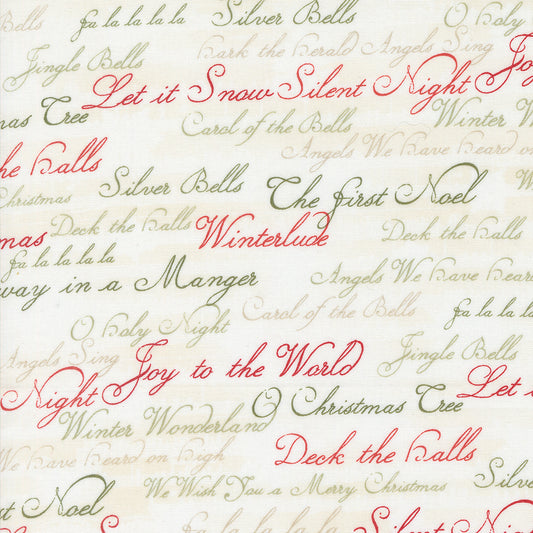 Bells fa la la la la Silver Bells O holy
hark the herald Angels Sing
Jingle Bells Joy
Let it Snow Silent Night
mas Tree Carol of the Bells Winter W
Angels We have heard on
he halls
Christmas Silver Bells The first Noel W
mas Deck the halls Winterlude Deck the halls
fa la la la la
way in a Manger Angels We have heard
Carol of the Bells fa la la la la
O holy Night
Angels Sing Joy to the World Jingle Bells
Night Let i
Winter Wonderland O Christmas Tree
We have heard on high Deck the halls
We Wish You a Merry Christmas Silver
st Noel
fa la la la la Silent Night